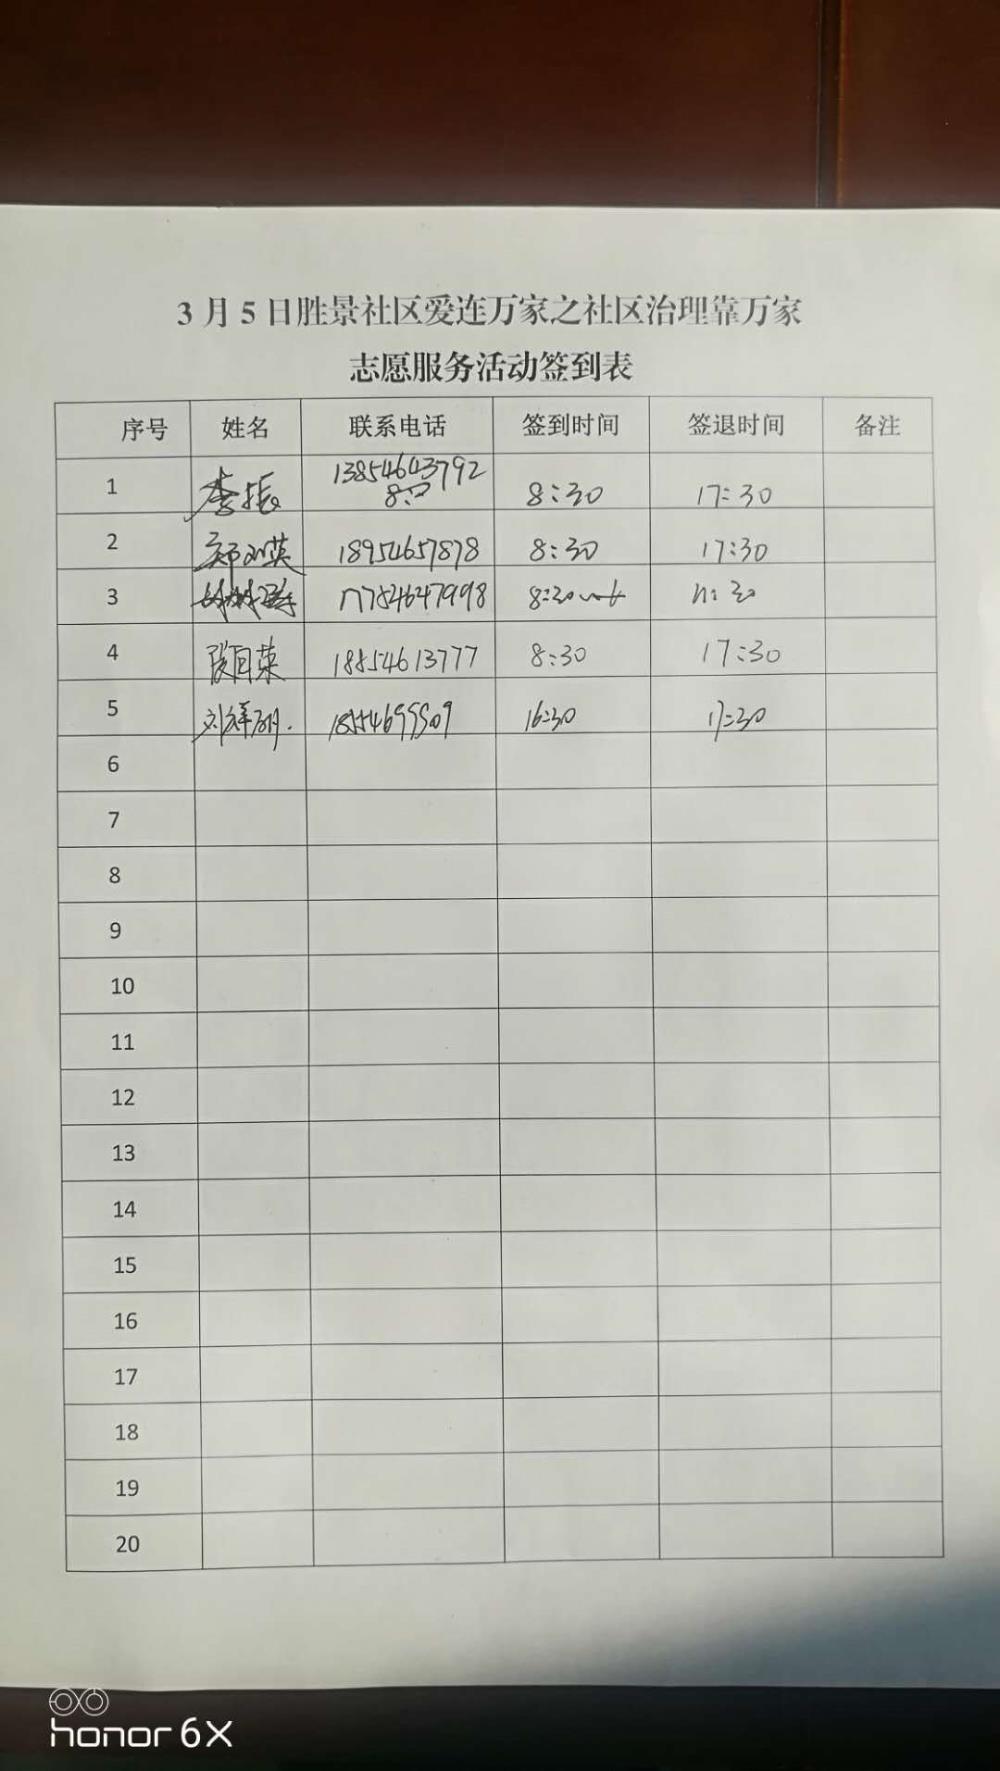 3月5日胜景社区爱连万家之社区治理靠万家
志愿服务活动签到表
序号 姓名 联系电话 签到时间 签退时间 备注
1 李振 13854643792 8:30 17:30
8:
2 18954657878 8:30 17:30
3 17754647998 8:30 17:30
4 段同荣 18854613777 8:30 17:30
5 16:30 17:30
6
7
8
9
10
11
12
13
14
15
16
17
18
19
20
honor 6X